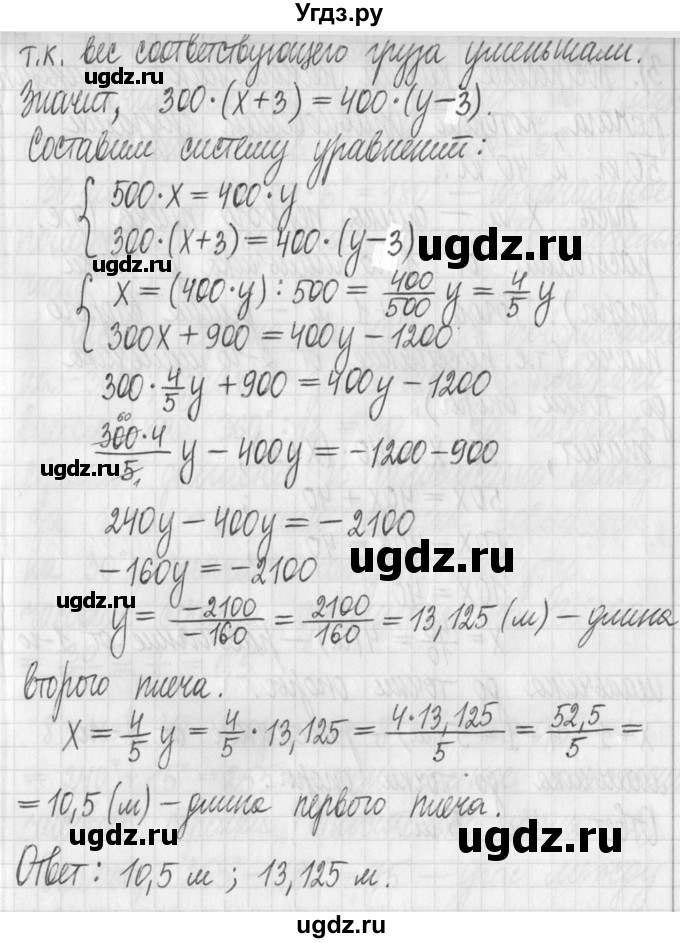 Угдз.ру
т.к. вес соответствующего груза уменьшали.
Значит, 300·(x+3) = 400·(y−3).
Составим систему уравнений:
{ 500·x = 400·y
{ 300·(x+3) = 400·(y−3)
ugdz.ru
ugdz.ru
{ x = (400·y) : 500 = 400/500 y = 4/5 y
{ 300x + 900 = 400y − 1200
300 · 4/5 y + 900 = 400y − 1200
60
300·4/5 1 y − 400y = −1200−900
ugdz.ru
ugdz.ru
240y − 400y = −2100
−160y = −2100
ugdz.ru
ugdz.ru
y = −2100/−160 = 2100/160 = 13,125 (м) − длина
второго плеча.
ugdz.ru
x = 4/5 y = 4/5 · 13,125 = 4·13,125/5 = 52,5/5 =
= 10,5 (м) − длина первого плеча.
ugdz.ru
ugdz.ru
Ответ: 10,5 м ; 13,125 м.
ugdz.ru